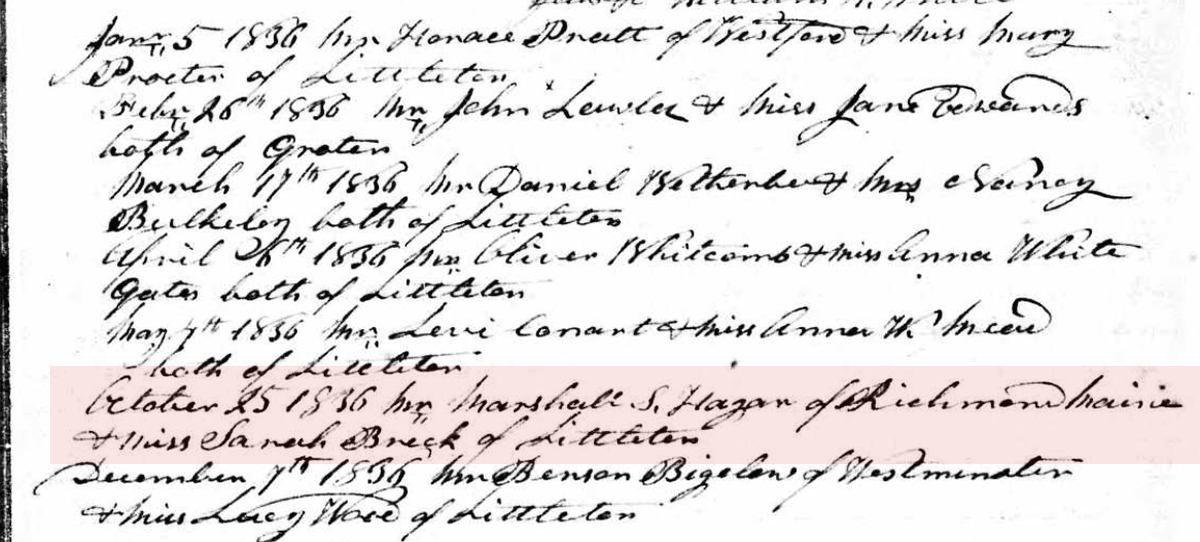 Janr. 5 1836 Mr. Horace Pratt of Westford & Miss Mary
Procter of Littleton
Febr. 26th 1836 Mr. John Lawler & Miss Jane Edwards
both of Groton
March 17th 1836 Mr Daniel Wetherbee & Mrs Nancy
Bulkeley both of Littleton
April 26th 1836 Mr Oliver Whitcomb & Miss Anna White
Gates both of Littleton
May 7th 1836 Mr. Levi Conant & Miss Anna W. Mead
both of Littleton
October 25 1836 Mr Marshall S. Hagar of Richmond Maine
& Miss Sarah Breck of Littleton
December 7th 1836 Mr Benson Bigelow of Westminster
& Miss Lucy Wood of Littleton